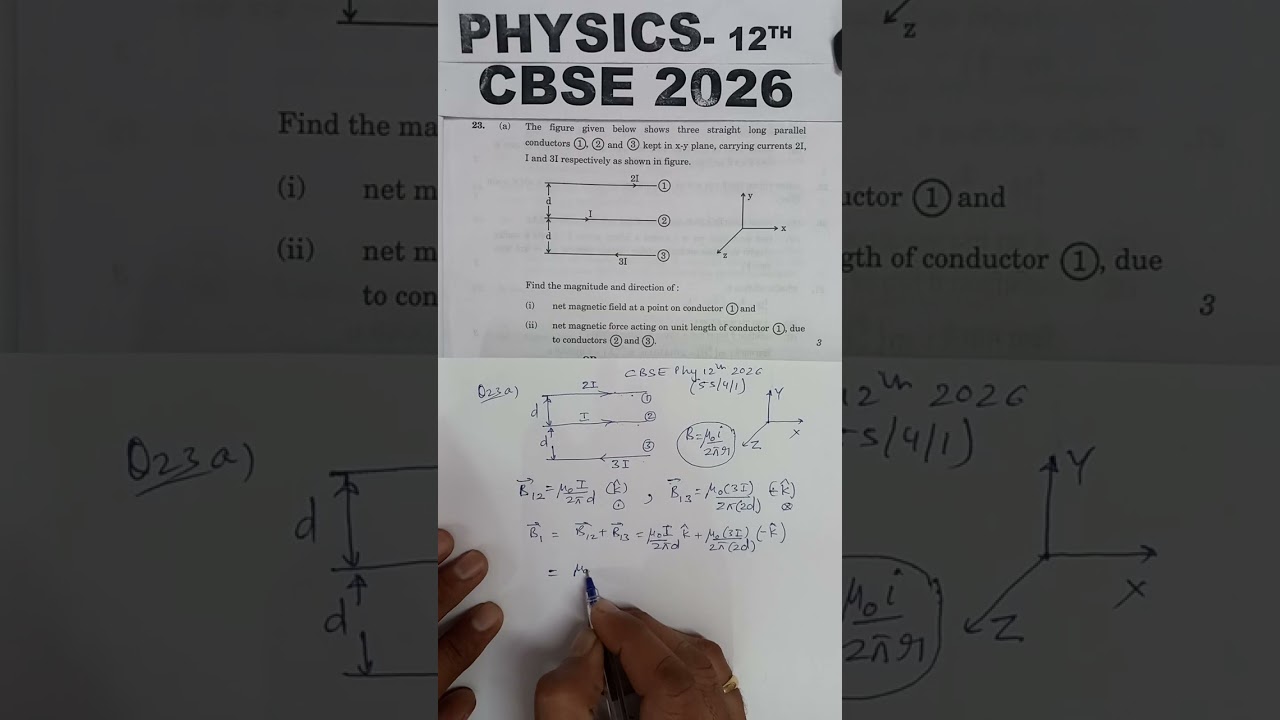 PHYSICS- 12TH
CBSE 2026
23. (a) The figure given below shows three straight long parallel
conductors ①, ② and ③ kept in x-y plane, carrying currents 2I,
I and 3I respectively as shown in figure.
2I ①
d
I ②
d
3I ③
y
x
z
Find the magnitude and direction of :
(i) net magnetic field at a point on conductor ① and
(ii) net magnetic force acting on unit length of conductor ①, due
to conductors ② and ③.
3
OR
CBSE Phy 12th 2026
(55/4/1)
Q23a)
2I ①
d
I ②
d
3I ③
B = μ₀i/2πr
Y
X
Z
B⃗₁₂ = μ₀I/2πd (k̂) ⊙ , B⃗₁₃ = μ₀(3I)/2π(2d) (-k̂) ⊗
B⃗₁ = B⃗₁₂ + B⃗₁₃ = μ₀I/2πd k̂ + μ₀(3I)/2π(2d) (-k̂)
= μ₀
z
Find the ma
(i) net m
(ii) net m
to con
uctor ① and
gth of conductor ①, due
3
Q23a)
d
d
12th 2026
5/4/1)
μ₀i
2πr
Y
X
Z